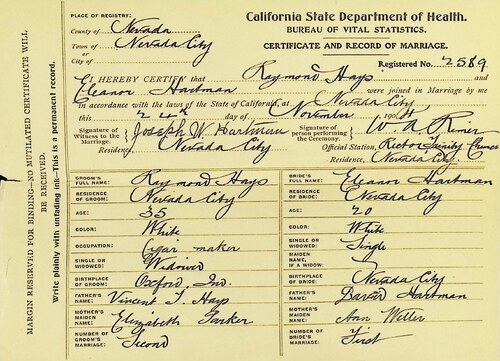 PLACE OF REGISTRY:
County of Nevada
Town of
or Nevada City
City of
California State Department of Health.
BUREAU OF VITAL STATISTICS.
CERTIFICATE AND RECORD OF MARRIAGE.
Registered No. 2589
I HEREBY CERTIFY that Raymond Hays and
Eleanor Hartman were joined in Marriage by me
in accordance with the laws of the State of California, at Nevada City
this 24th day of November 190
Signature of Witness to the Marriage, Joseph W. Hartman
Residence, Nevada City
Signature of person performing the Ceremony. W. A. Rimer
Official Station, Rector Trinity
Residence, Nevada City.
GROOM'S FULL NAME: Raymond Hays
RESIDENCE OF GROOM: Nevada City
AGE: 35
COLOR: White
OCCUPATION: Cigar maker
SINGLE OR WIDOWED: Widower
BIRTHPLACE OF GROOM: Oxford, Ind.
FATHER'S NAME: Vincent T. Hays
MOTHER'S MAIDEN NAME: Elizabeth Parker
NUMBER OF GROOM'S MARRIAGE: Second
BRIDE'S FULL NAME: Eleanor Hartman
RESIDENCE OF BRIDE: Nevada City
AGE: 20
COLOR: White
SINGLE OR WIDOWED: Single
MAIDEN NAME, IF A WIDOW:
BIRTHPLACE OF BRIDE: Nevada City
FATHER'S NAME: David Hartman
MOTHER'S MAIDEN NAME: Ann Weller
NUMBER OF BRIDE'S MARRIAGE: First
MARGIN RESERVED FOR BINDING—NO MUTILATED CERTIFICATE WILL
BE RECEIVED.
Write plainly with unfading ink—This is a permanent record.